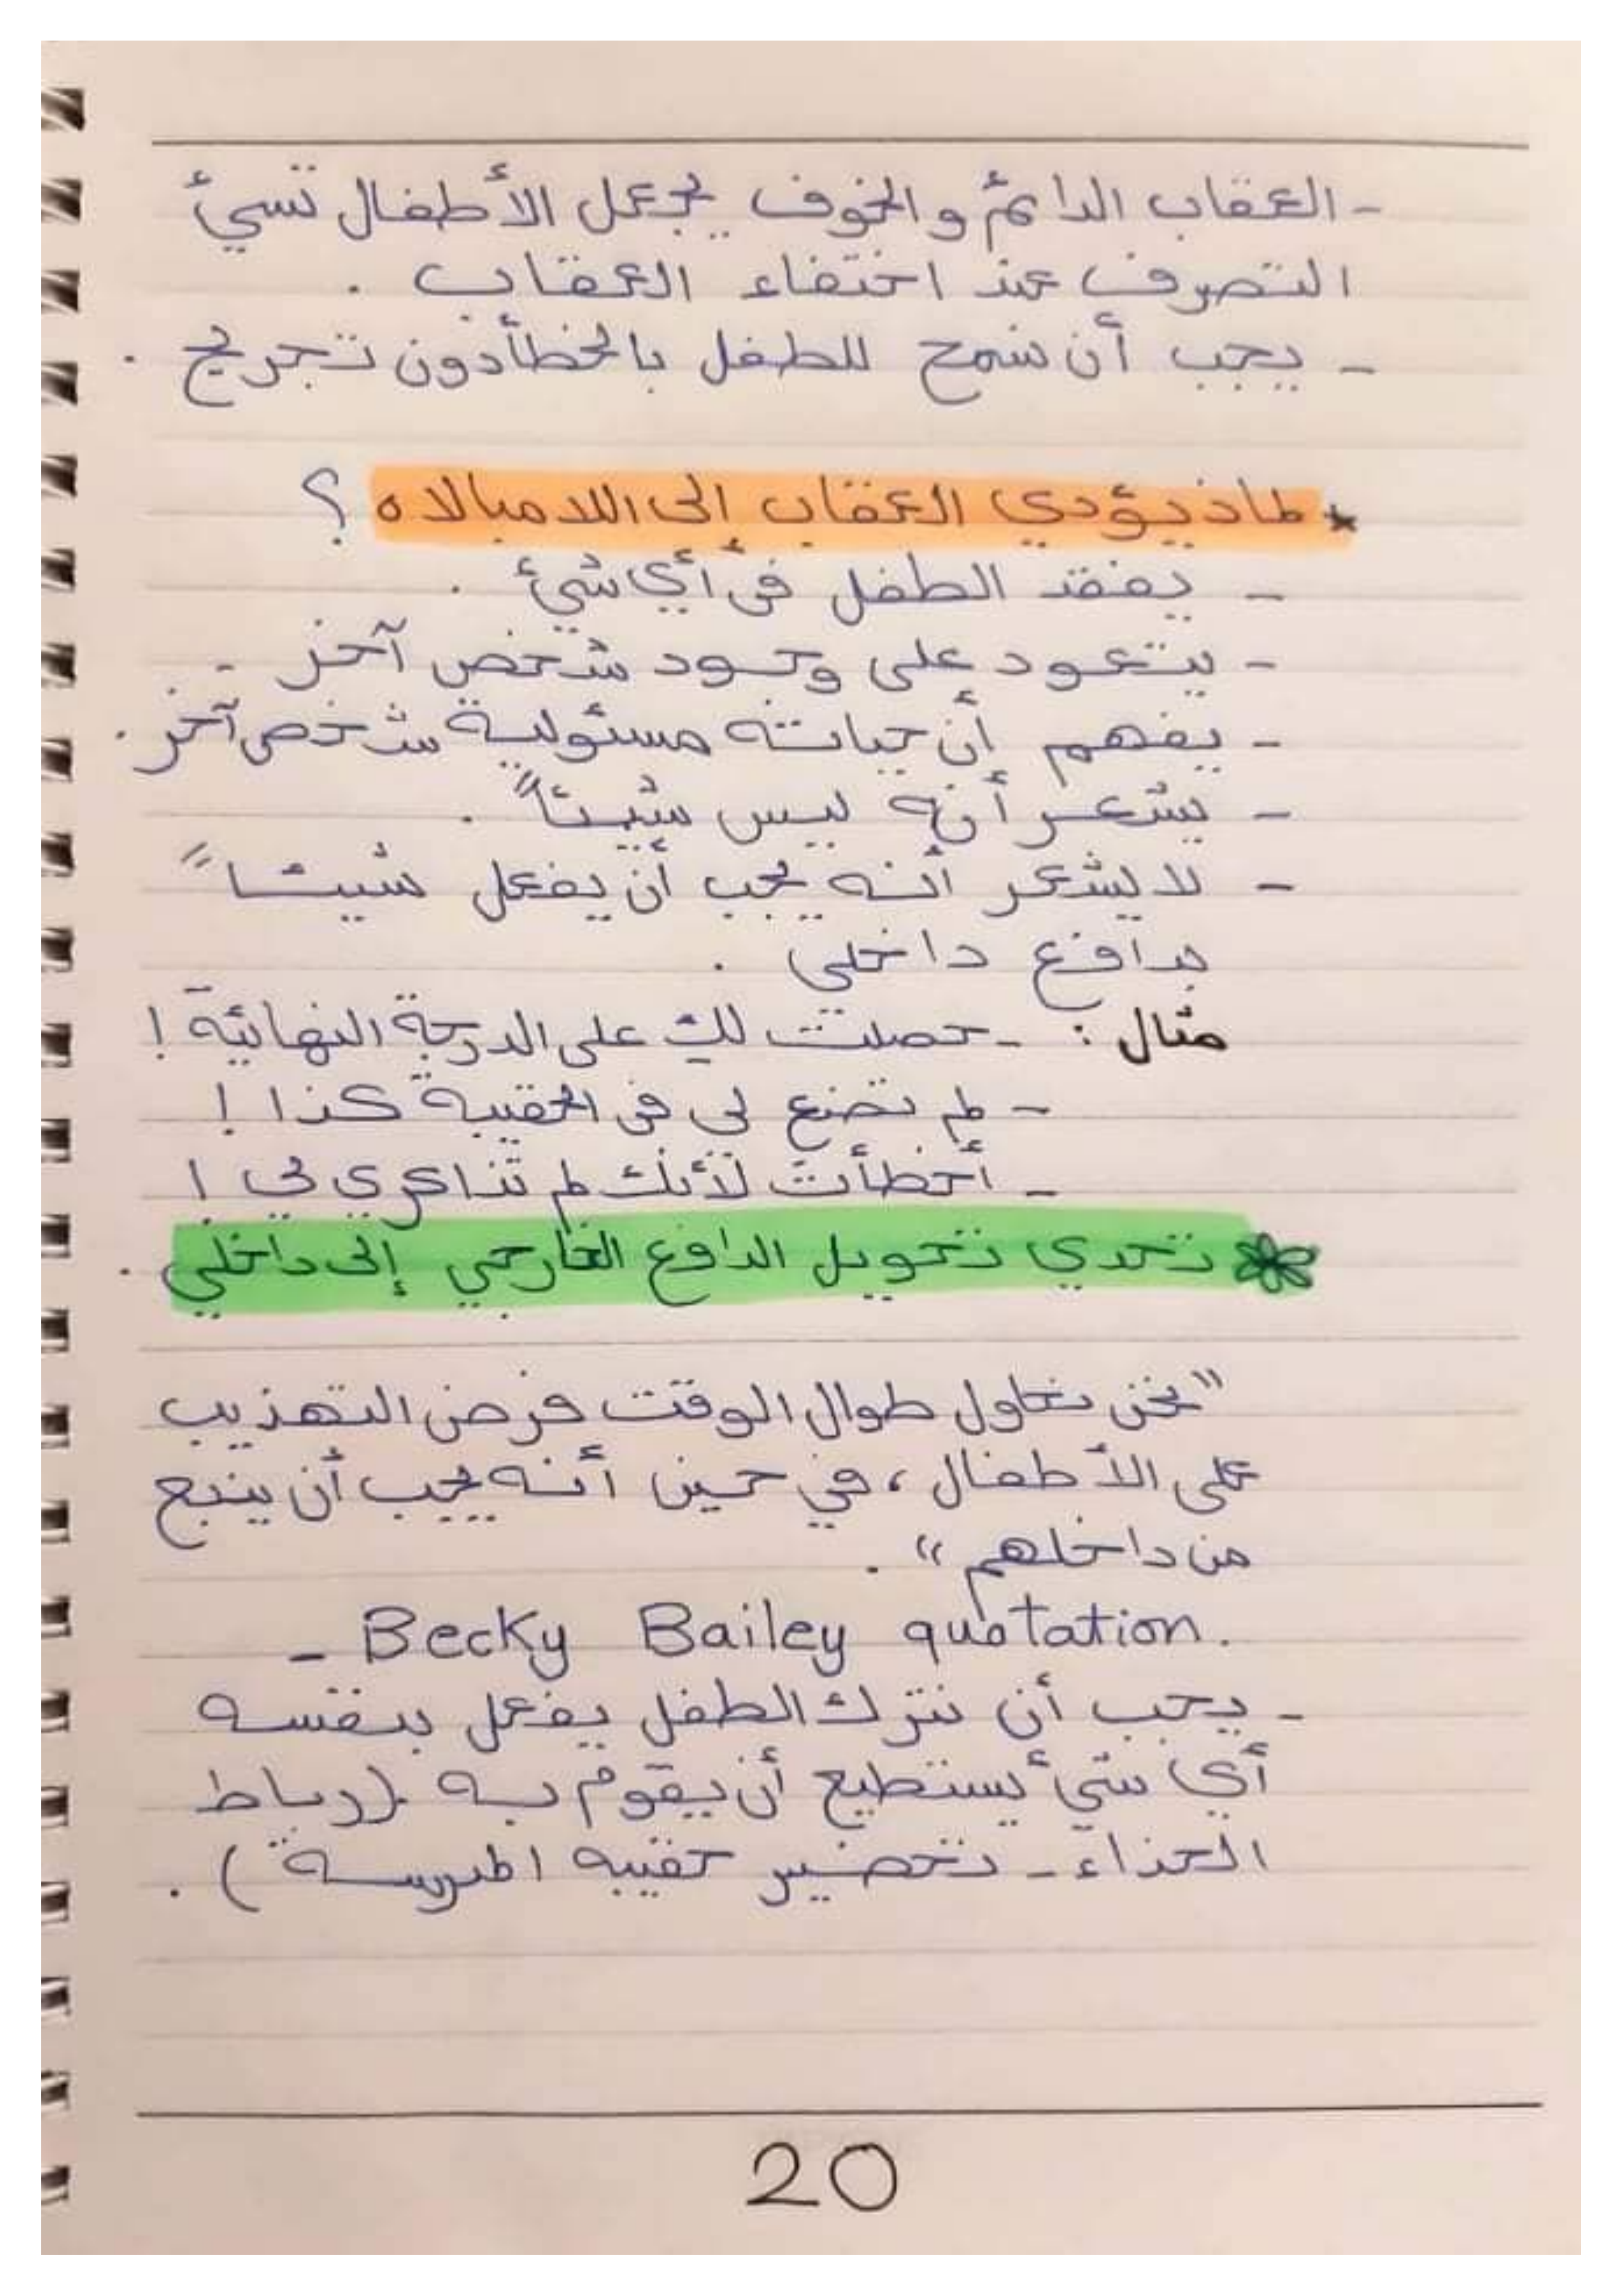 - العقاب الدائم والخوف يجعل الأطفال تسيئ
التصرف عند اختفاء العقاب .
- يجب أن نسمح للطفل بالخطأ دون تجريح .
* لماذ يؤدي العقاب الى اللامبالاه ؟
- يفقد الطفل في أي شئ .
- يتعود على وجود شخص آخر .
- يفهم أن حياته مسئولية شخص آخر .
- يشعر أنه ليس شيئاً .
- لا يشعر أنه يجب أن يفعل شيئاً
بدافع داخلي .
مثال : - حصلت لك على الدرجة النهائية !
- لم تضع لي في الحقيبة كذا !
- أخطأت لأنك لم تذاكري لي !
تحدي تحويل الدافع الخارجي إلى داخلي .
"نحن نحاول طوال الوقت فرض التهذيب
على الأطفال ، في حين أنه يجب أن ينبع
من داخلهم " .
- Becky Bailey quotation.
- يجب أن نترك الطفل يفعل بنفسه
أي شئ يستطيع أن يقوم به . (رباط
الحذاء - تحضير حقيبه المدرسة ) .
20